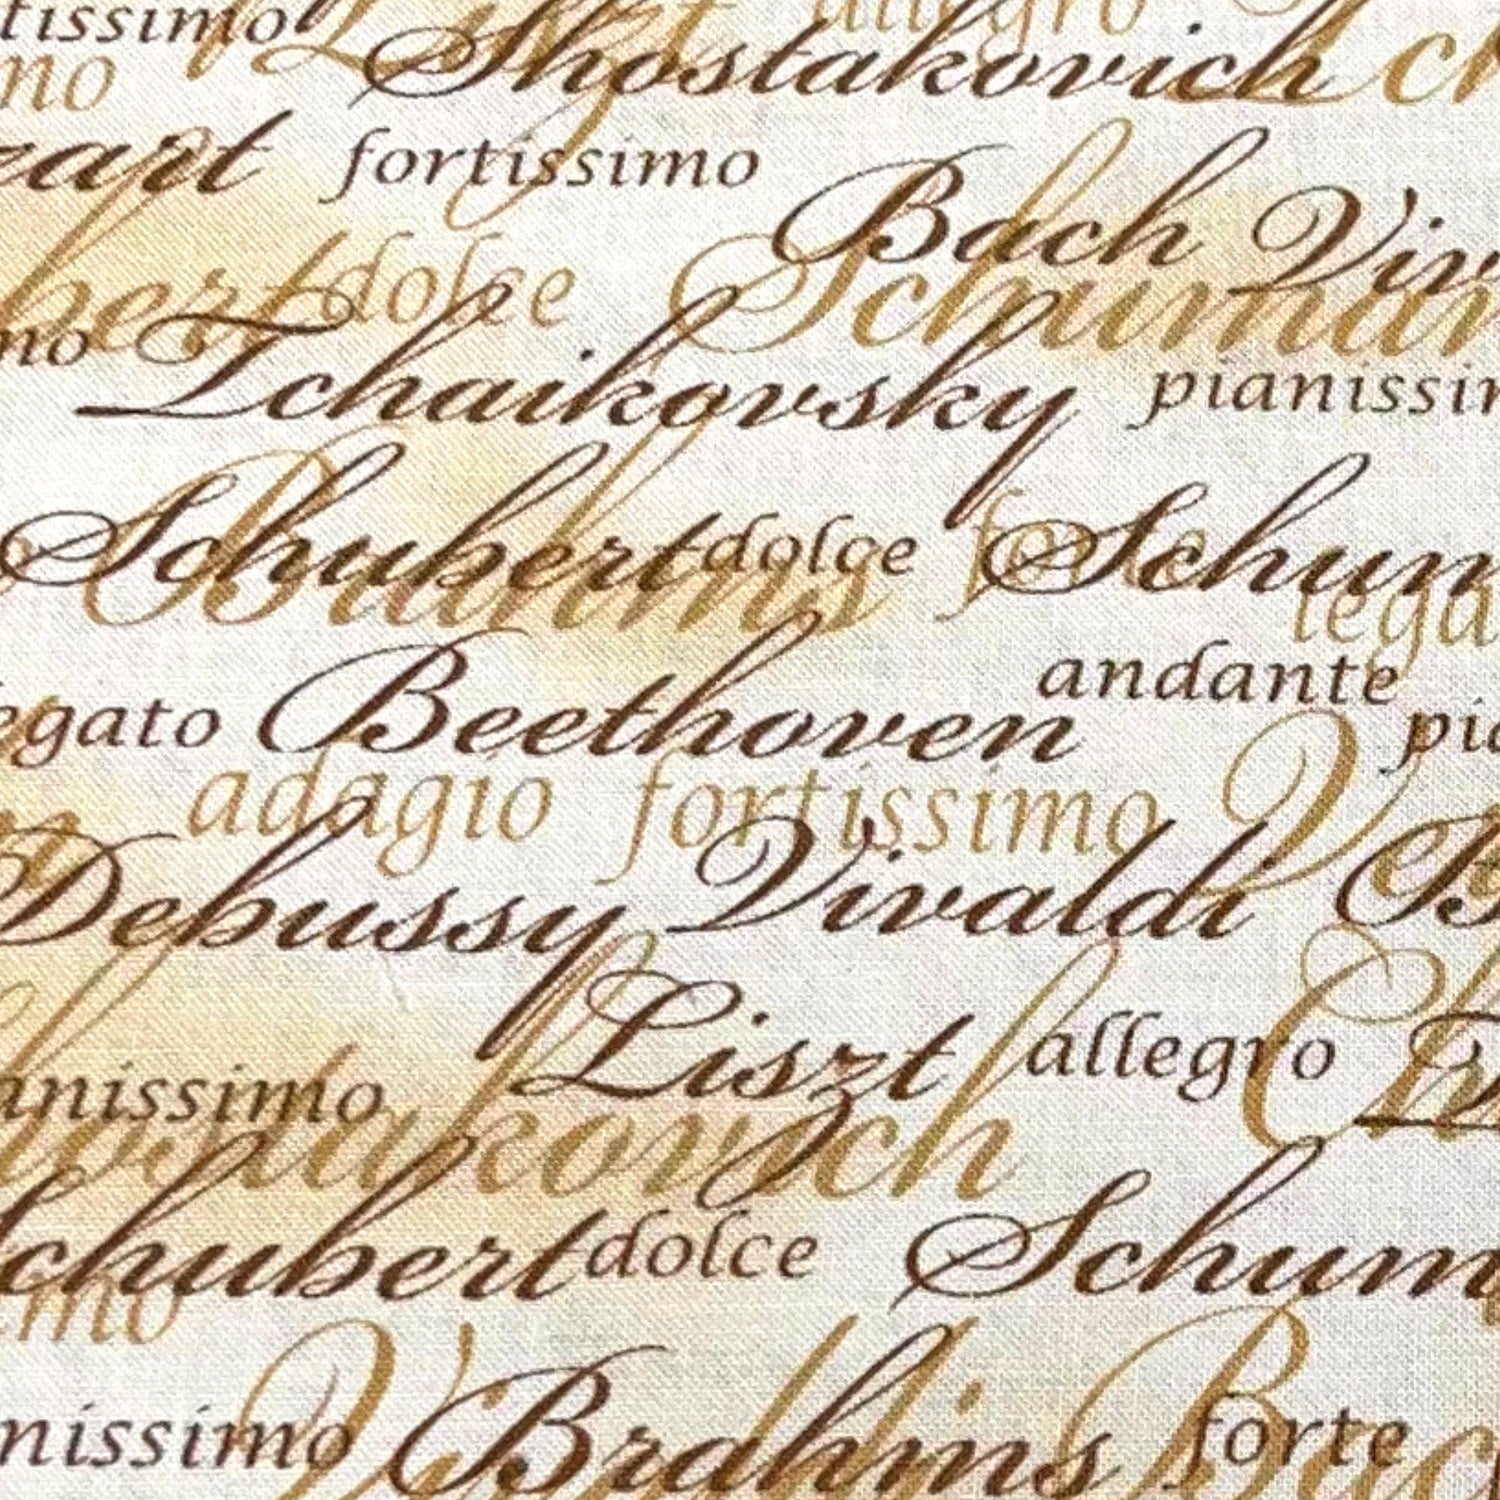 tissimo Liszt allegro
no Shostakovich Tch
zart fortissimo
Bach Viv
bert dolce Schuman
no Tchaikovsky pianissim
Schubert dolce forte Schum
Brahms lega
andante
egato Beethoven pia
adagio fortissimo Ve
Debussy Vivaldi B
Liszt allegro
anissimo
stakovich
chubert dolce Schum
imo
nissimo Vivaldi Brahms forte Bac